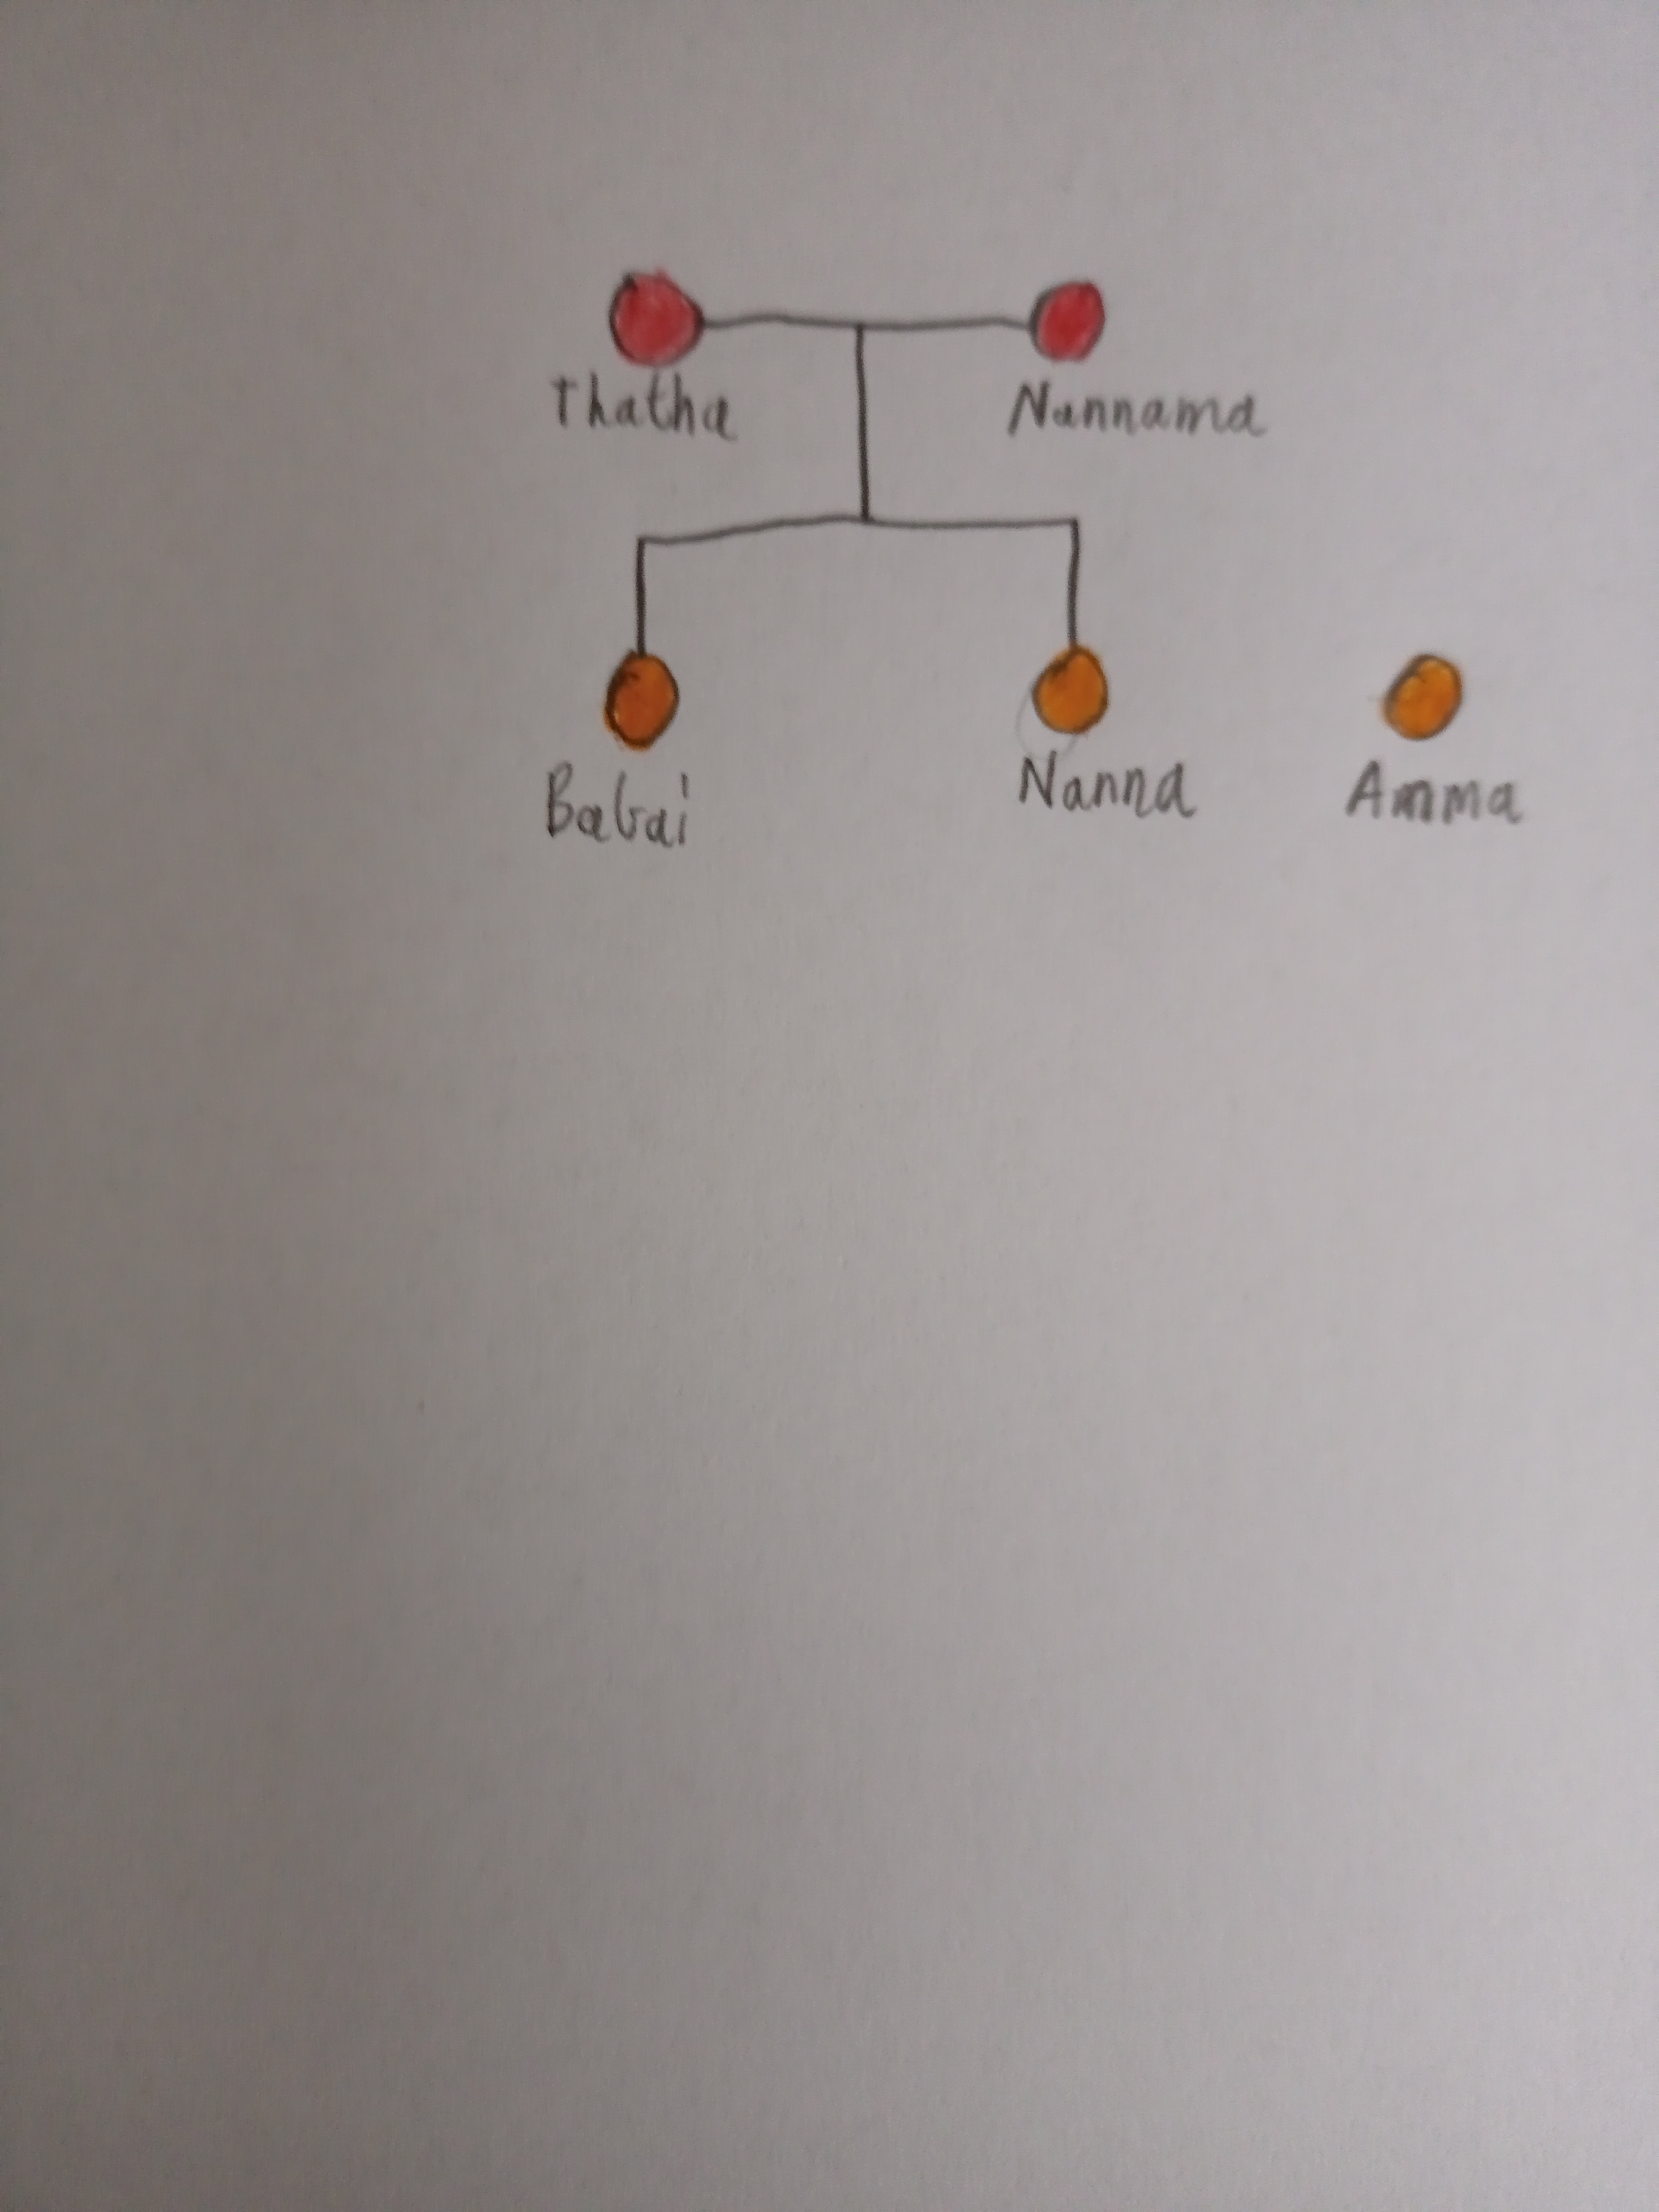 Thatha Nannama
Babai Nanna Amma